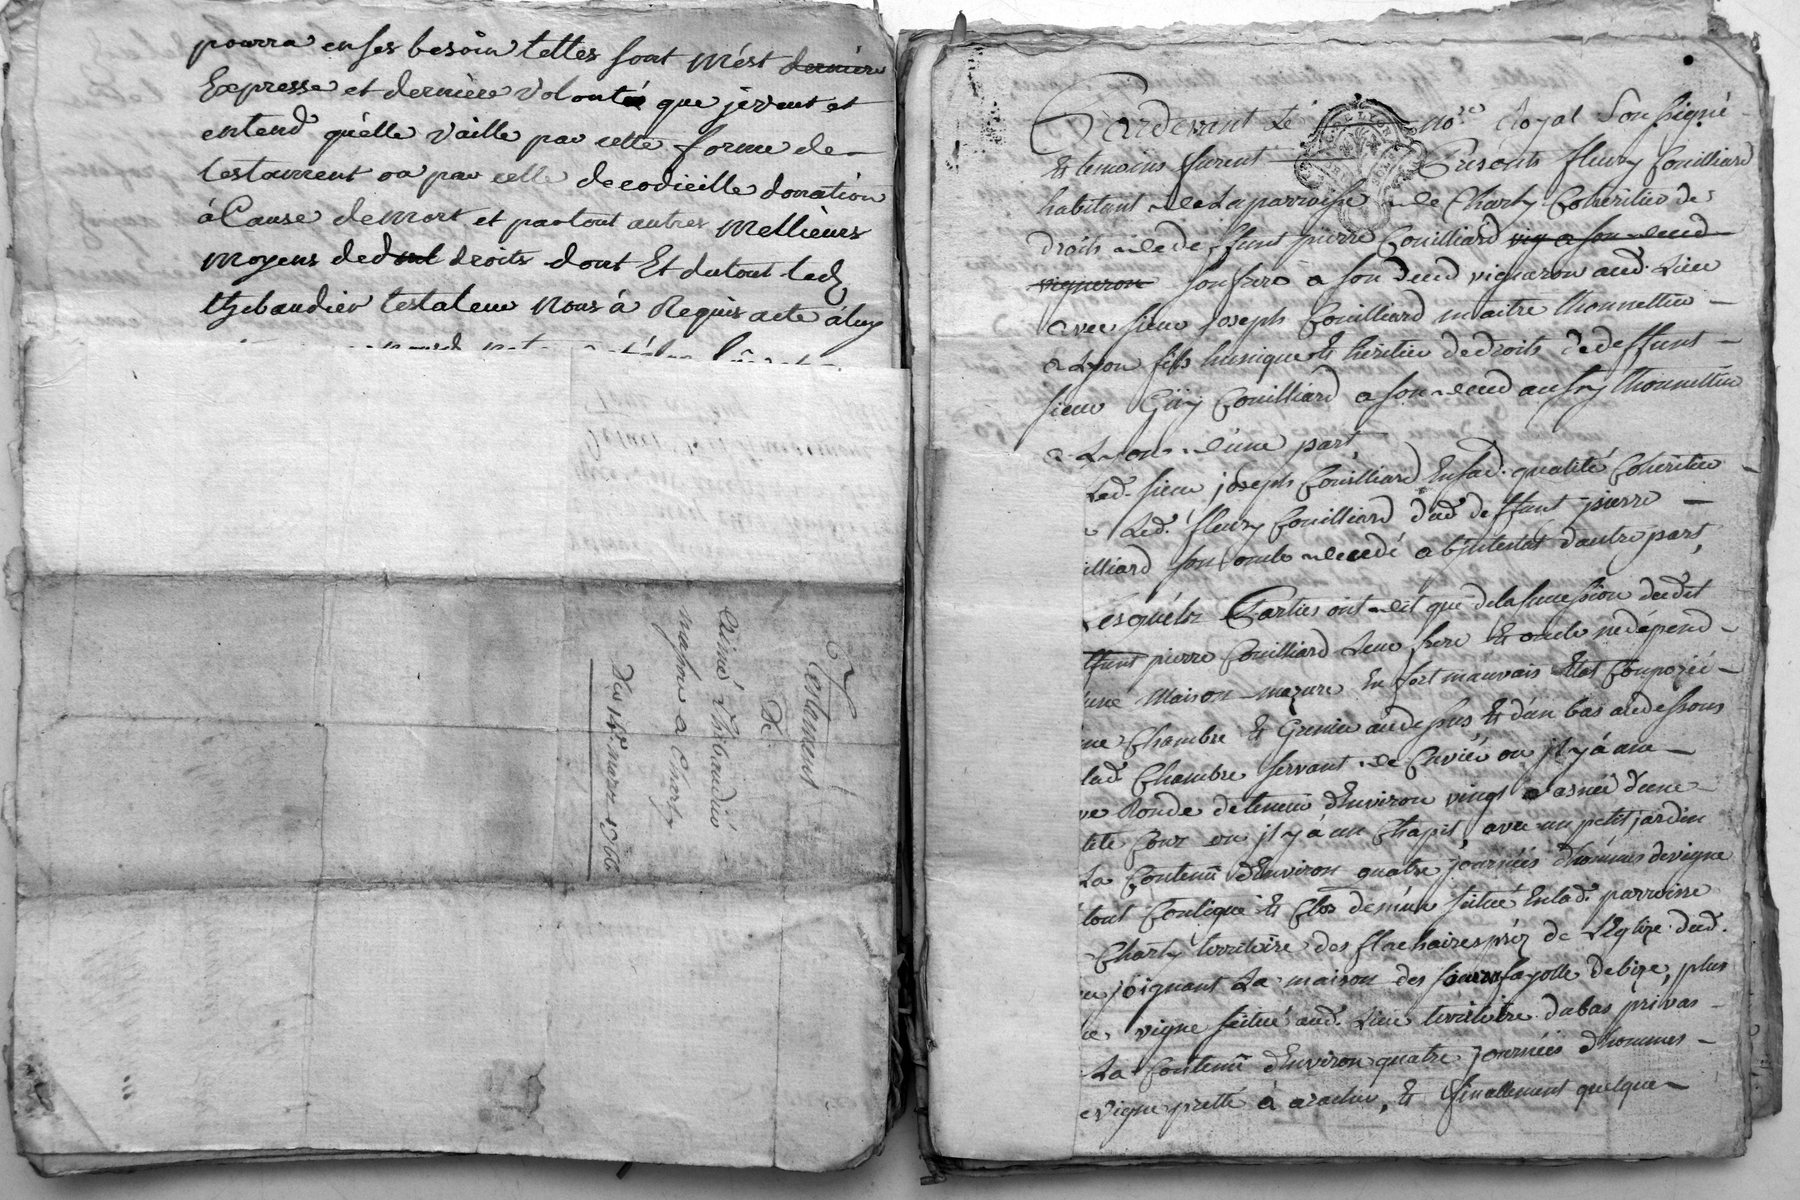 pourra en ses besoin telles sont mést dernière
Expresse et dernière volonté que je veut et
entend quélle vaille par cette forme de
testament ou par celle de codicille donation
á Cause de mort et par tout autres mellieurs
moyens de droits dont Et du tout led
thebaudier testateur nous à Requis acte á luy
Testament
De
Aimé Thibaudié
a Charly
Du 14e mars 1766
Pardevant Le no.re Royal Soussigné
& temoins furent Presents fleury Couilliard
habitant de La parroisse de Charly Cohéritier de
droits de deffunt pierre Couilliard vig a son decd
vigneron son frere a son deced vigneron aud. Lieu
avec sieur Joseph Couilliard maitre thonnellier
a Lyon fils hunique & héritier de droits de deffunt
sieur Guy Couilliard a son deced aussy thonnellier
a Lyon d'une part
Led. sieur joseph Couilliard En sad. qualité Cohéritier
Led. fleury Couilliard dud. deffunt pierre
illiard son oncle decedé abjntestat d'autre part,
Lesquéls Parties ont dit que de la succession dudit
ffunt pierre Couilliard Leur frere & oncle ne dépend
une maison mazure En fort mauvais Etat Compozéé
ne Chambre & Grenier au dessus & d'un bas au dessous
lad. Chambre servant de Cuvier ou jl y á une
ve Ronde de teneur d'Environ vingt asnéé d'une
tite Cour ou jl y á un Chapit, avec un petit jardin
La Contenu d'Environ quatre journéés d'hommes de vigne
tout Contigue & Clos de murs scitué En lad. parroisse
Charly territoire des flachaires préz de L'Eglize dud.
u joignant La maison des fayolle de bize, plus
ne vigne scitué aud. Lieu territoire du bas privas
La Contenu d'Environ quatre journéés d'hommes
e vigne prette á aracher, & finallement quelque